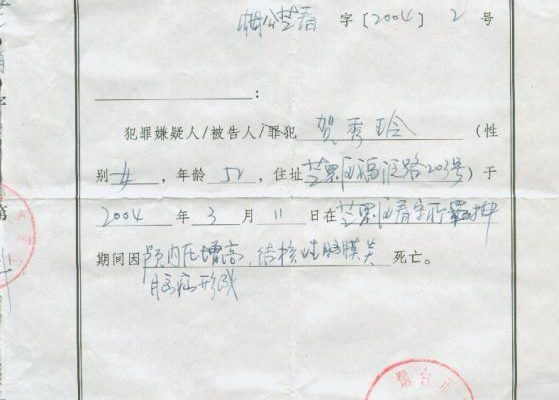 字[2004]2号
:
犯罪嫌疑人/被告人/罪犯 贺秀玲 (性
别女,年龄52,住址芝罘区福泛路203号)于
2004年3月11日在芝罘区看守所羁押
期间因颅内压增高,结核性脑膜炎 死亡。
脑疝形成
烟台市